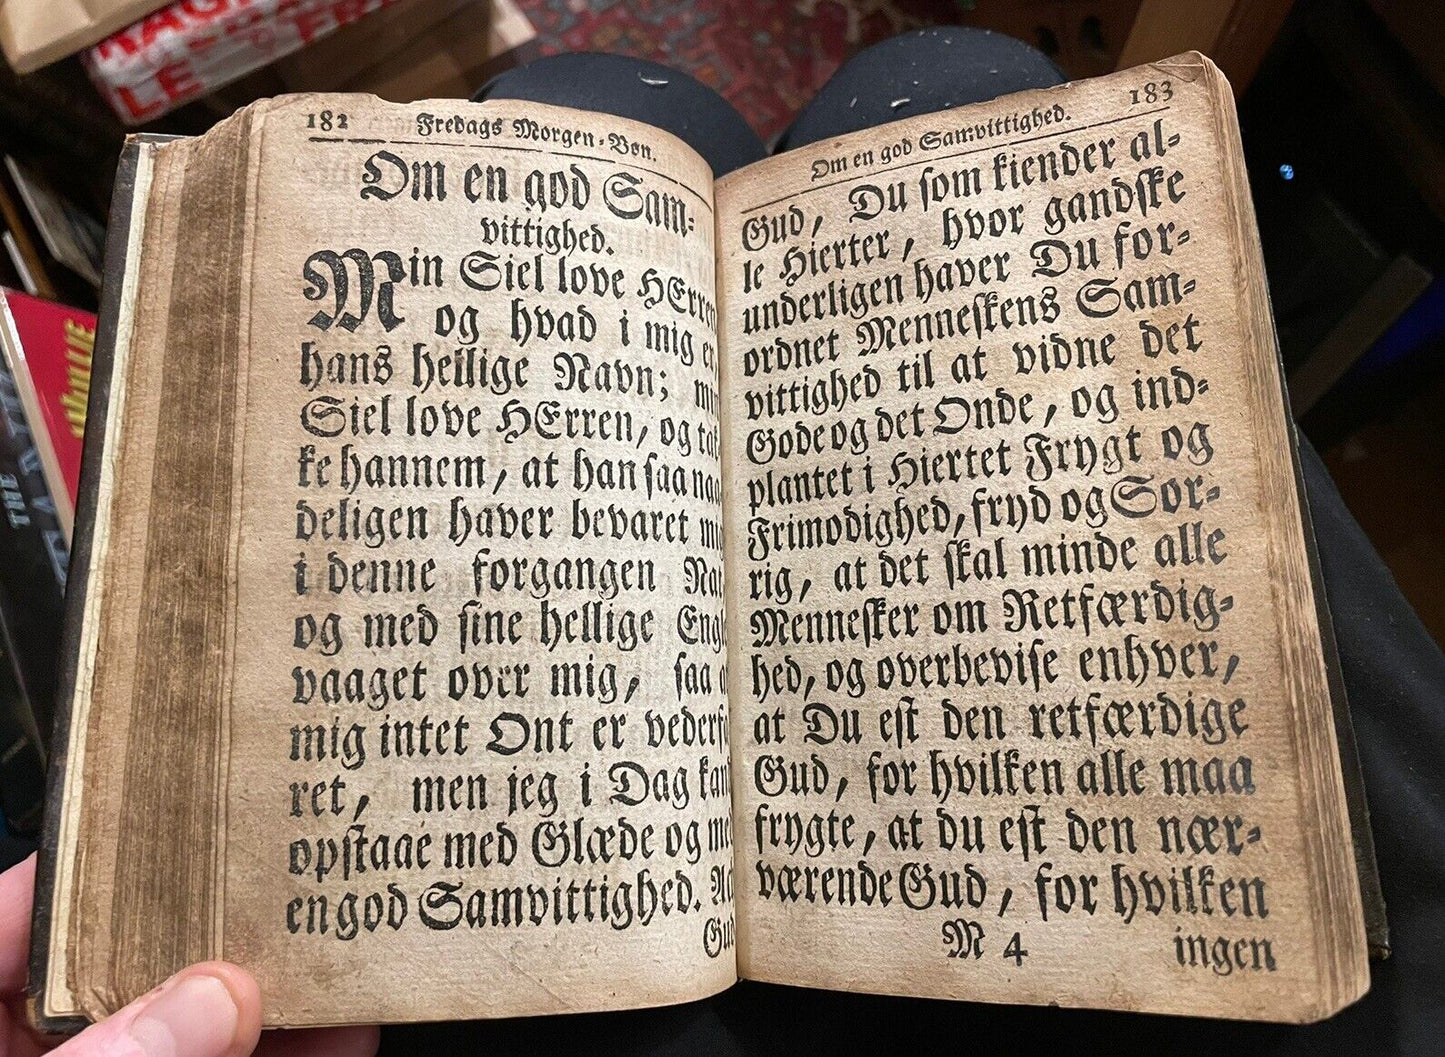 182 Fredags Morgen-Bøn.
Om en god Sam-
vittighed.
Min Siel love HErren
og hvad i mig er,
hans hellige Navn; min
Siel love HErren, og tak-
ke hannem, at han saa naa-
deligen haver bevaret mig
i denne forgangen Nat
og med sine hellige Engle
vaaget over mig, saa at
mig intet Ont er vederfa-
ret, men jeg i Dag kand
opstaae med Glæde og med
en god Samvittighed. Ach
Gud
183
Om en god Samvittighed.
Gud, Du som kiender al-
le Hierter, hvor gandske
underligen haver Du for-
ordnet Menneskens Sam-
vittighed til at vidne det
Gode og det Onde, og ind-
plantet i Hiertet Frygt og
Frimodighed, fryd og Sor-
rig, at det skal minde alle
Mennesker om Retfærdig-
hed, og overbevise enhver,
at Du est den retfærdige
Gud, for hvilken alle maa
frygte, at du est den nær-
værende Gud, for hvilken
M 4 ingen
THE